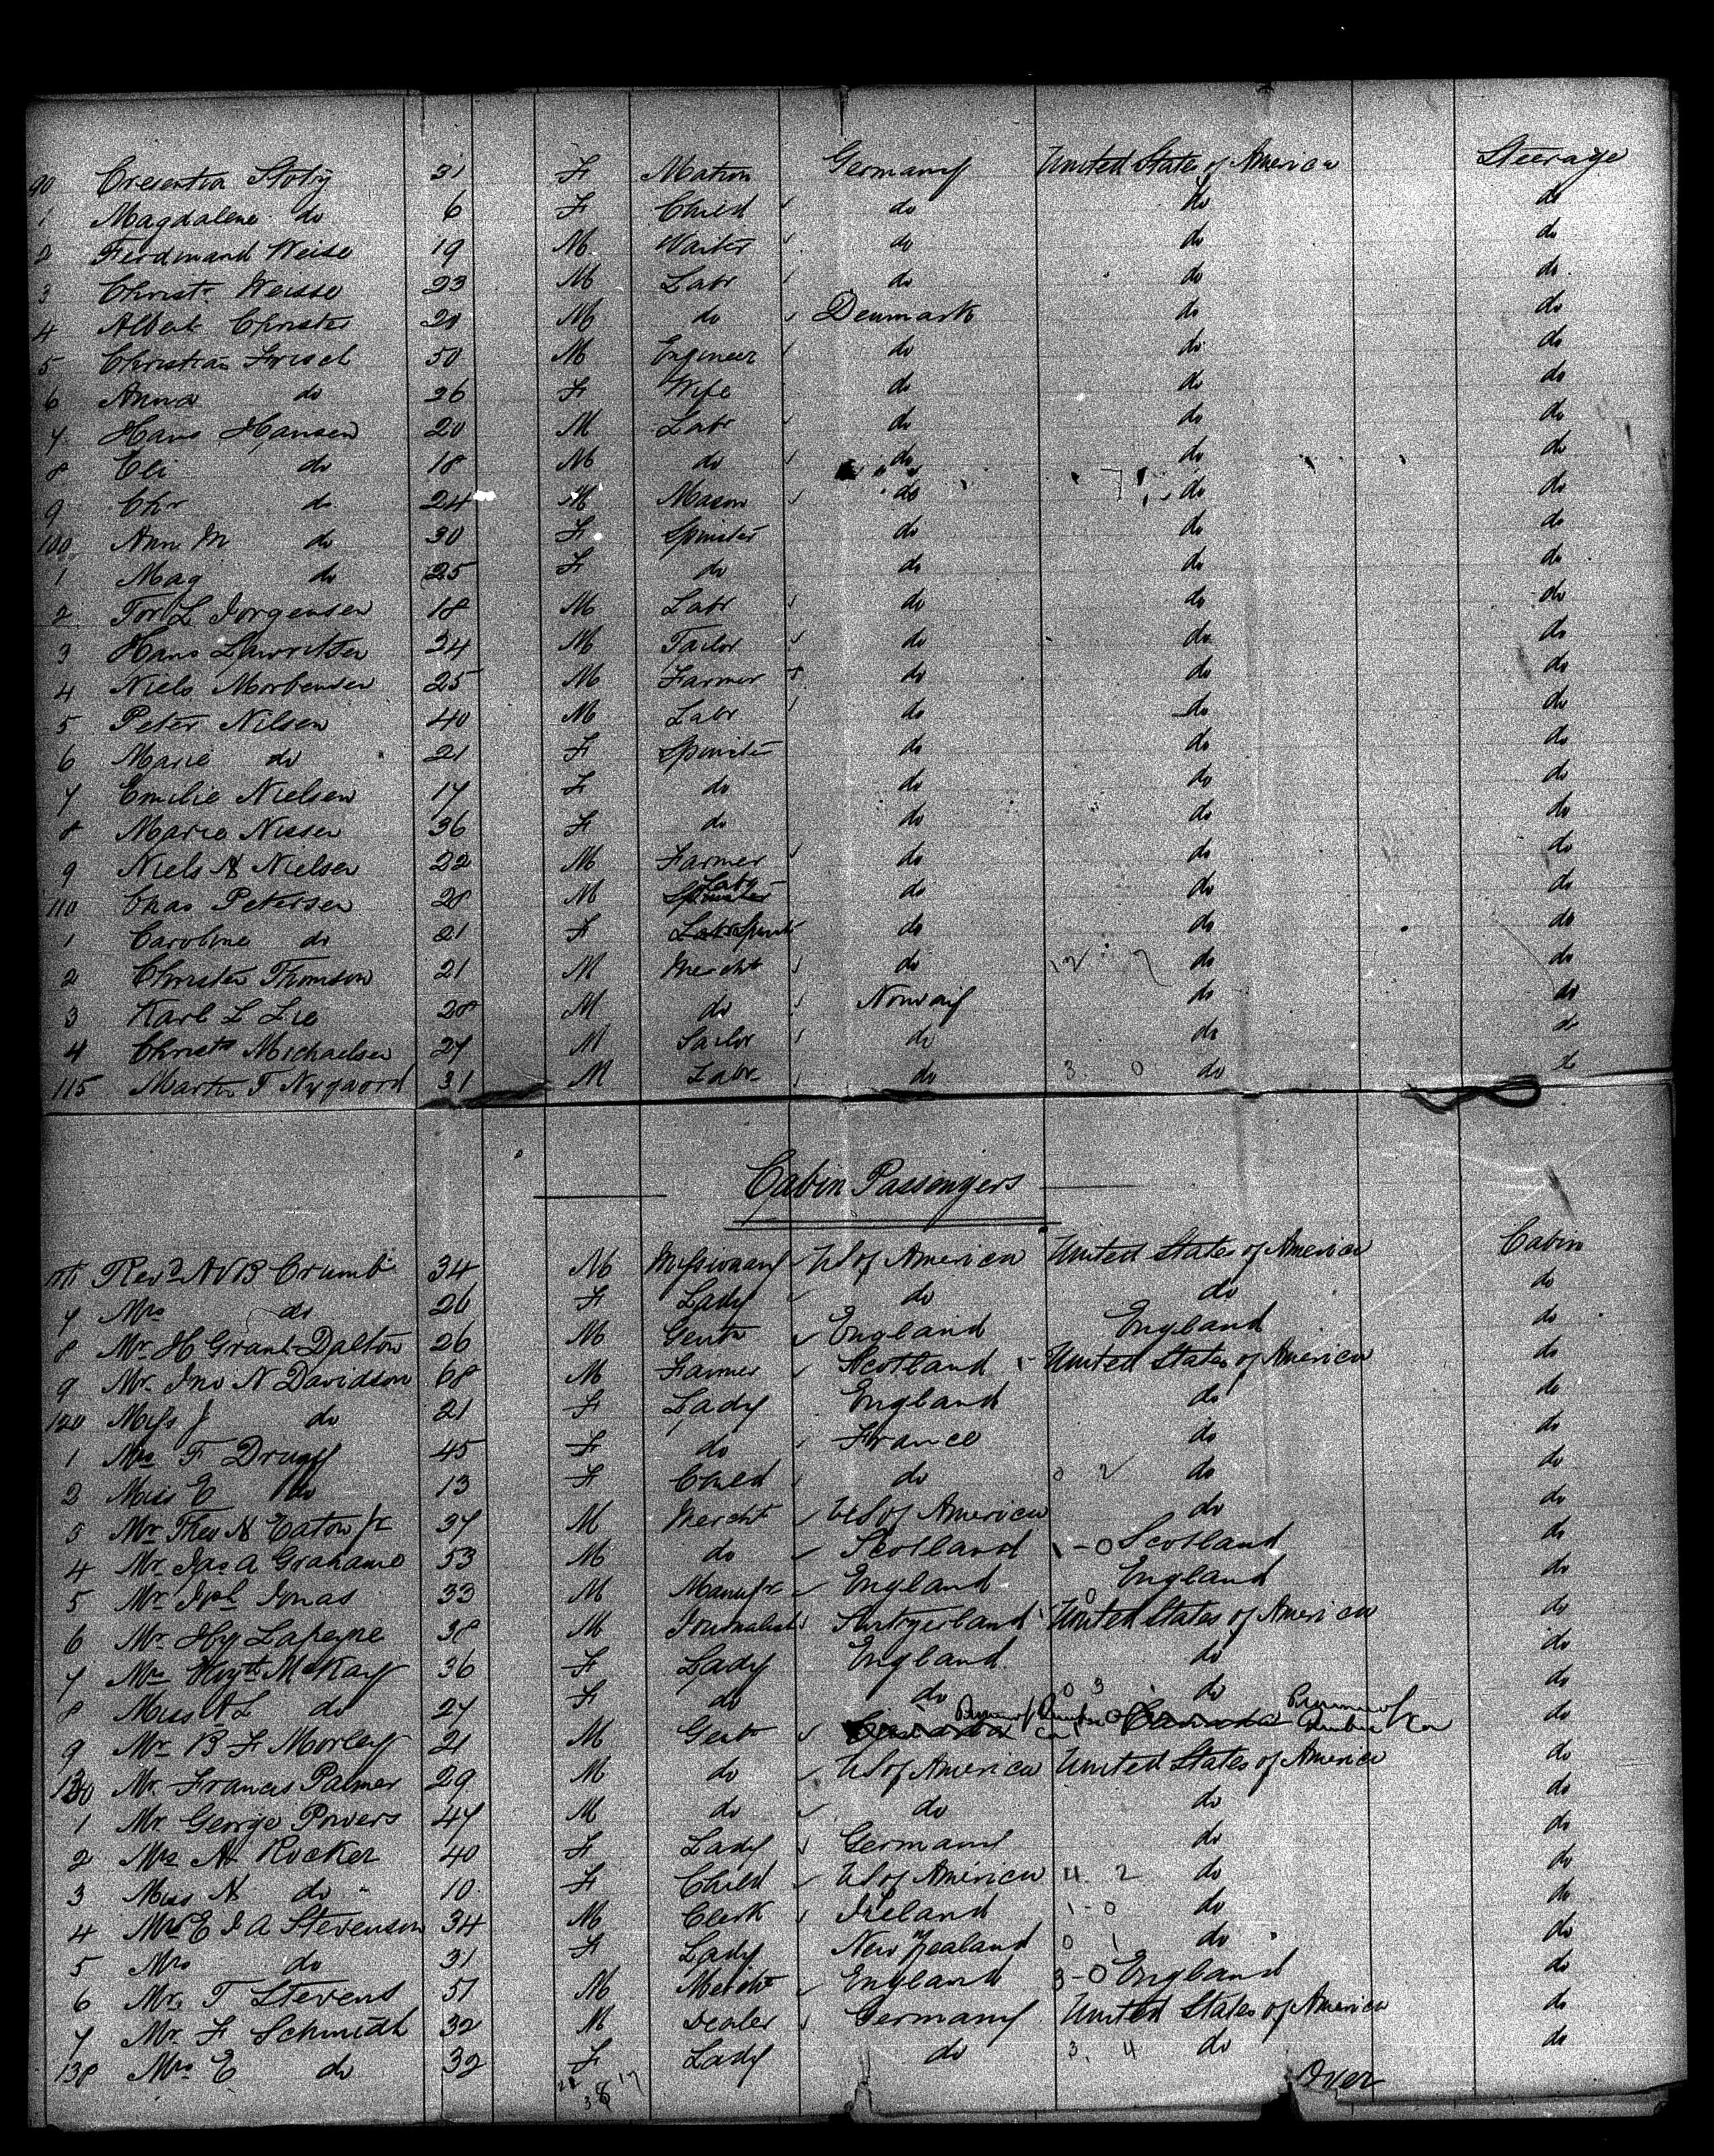 90 Cresentia 31 F Matron Germany United States of America Steerage
1 Magdalene do 6 F Child do do do
2 Ferdinand Weise 19 M Waiter do do do
3 Christn Weisse 23 M Labr do do do
4 Albert Christn 20 M do Denmark do do
5 Christian Frisch 50 M Engineer do do do
6 Anna do 36 F Wife do do do
7 Hans Hansen 20 M Labr do do do
8 Eli do 18 M do do do do
9 Chr do 24 M Mason do do do
100 Ann M do 30 F Spinster do do do
1 Mag do 25 F do do do do
2 Tor L Jorgensen 18 M Labr do do do
3 Hans Lawritsen 24 M Tailor do do do
4 Niels Morbensen 25 M Farmer do do do
5 Peter Nilsen 40 M Labr do do do
6 Marie do 21 F Spinster do do do
7 Emilie Nielsen 17 F do do do do
8 Marie Nissen 36 F do do do do
9 Niels A Nielsen 22 M Farmer do do do
110 Chas Petersen 28 M Spinster Labr do do do
1 Caroline do 21 F Labr Spinstr do do do
2 Christen Thomson 21 M Mercht do 12 2 do do
3 Karl L Lie 28 M do Norway do do
4 Christn Michaelsen 27 M Sailor do do do
115 Martn T. Nygaard 31 M Labr do 3 0 do do
Cabin Passengers
Revd A V B Crumb 34 M Missionary U S of America United States of America Cabin
7 Mrs do 26 F Lady do do do
8 Mr H Grant-Dalton 26 M Gentn England England do
9 Mr Jno N Davidson 68 M Farmer Scotland United States of America do
120 Miss J do 21 F Lady England do do
1 Mrs F 45 F do France do do
2 Miss E do 13 F Child do 0 2 do do
3 Mr Theo H Eaton Jr 37 M Mercht U S of America do do
4 Mr Jas A Grahame 53 M do Scotland 1-0 Scotland do
5 Mr Jph Jonas 33 M Manufr England 0 England do
6 Mr Hy Lapeyre 38 M Journalist Switzerland United States of America do
7 Mrs McKay 36 F Lady England do do
8 Miss A L do 27 F do do 0 3 do do
9 Mr B F Morley 21 M Gentn Canada Canada do
130 Mr Francis Palmer 29 M do U S of America United States of America do
1 Mr George Powers 47 M do do do do
2 Mrs A Rocker 40 F Lady Germany do do
3 Miss A do 10 F Child U S of America 4 2 do do
4 Mr E J A Stevenson 34 M Clerk Ireland 1-0 do do
5 Mrs do 31 F Lady New Zealand 0 1 do do
6 Mr T Stevens 51 M Mercht England 3-0 England do
7 Mr F Schmidt 32 M Dealer Germany United States of America do
138 Mrs E do 32 F Lady do 3. 4 do do
21 17
38
Over